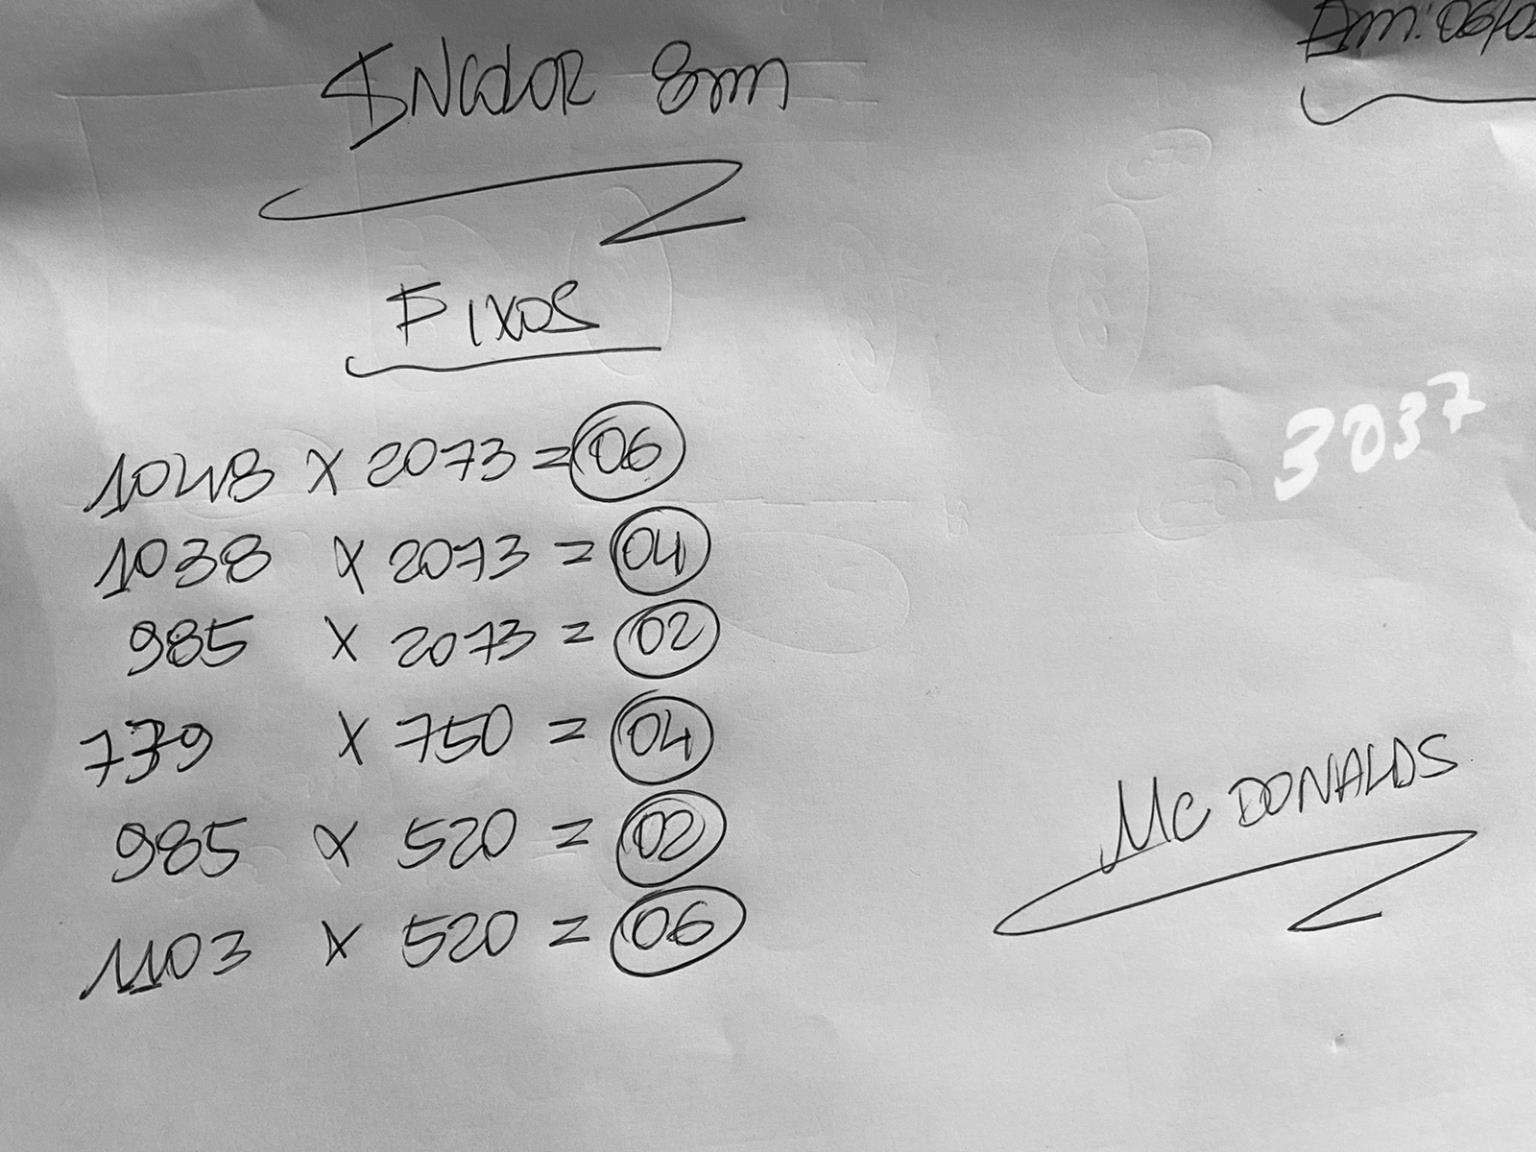 Em: 06/02
INCOLOR 8mm
FIXOS
3037
1048 X 2073 = 06
1038 X 2073 = 04
985 X 2073 = 02
739 X 750 = 04
985 X 520 = 02
1103 X 520 = 06
MC DONALDS